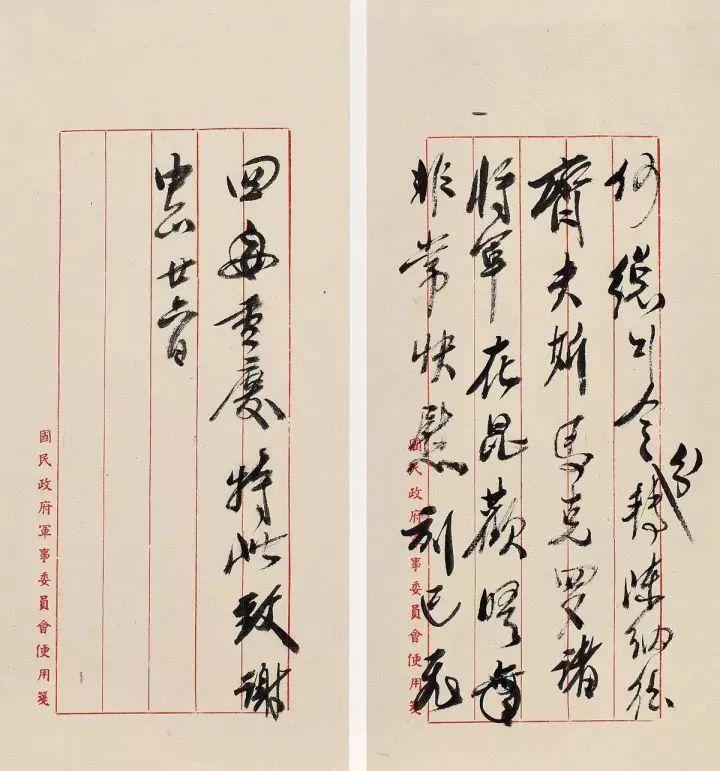 何總司令分轉陳納德
齊夫斯馬克羅諸
將軍在昆歡晤
非常快慰刻已飛
國民政府事委員會便用箋
回重慶特此致謝
中正廿六日
國民政府軍事委員會便用箋